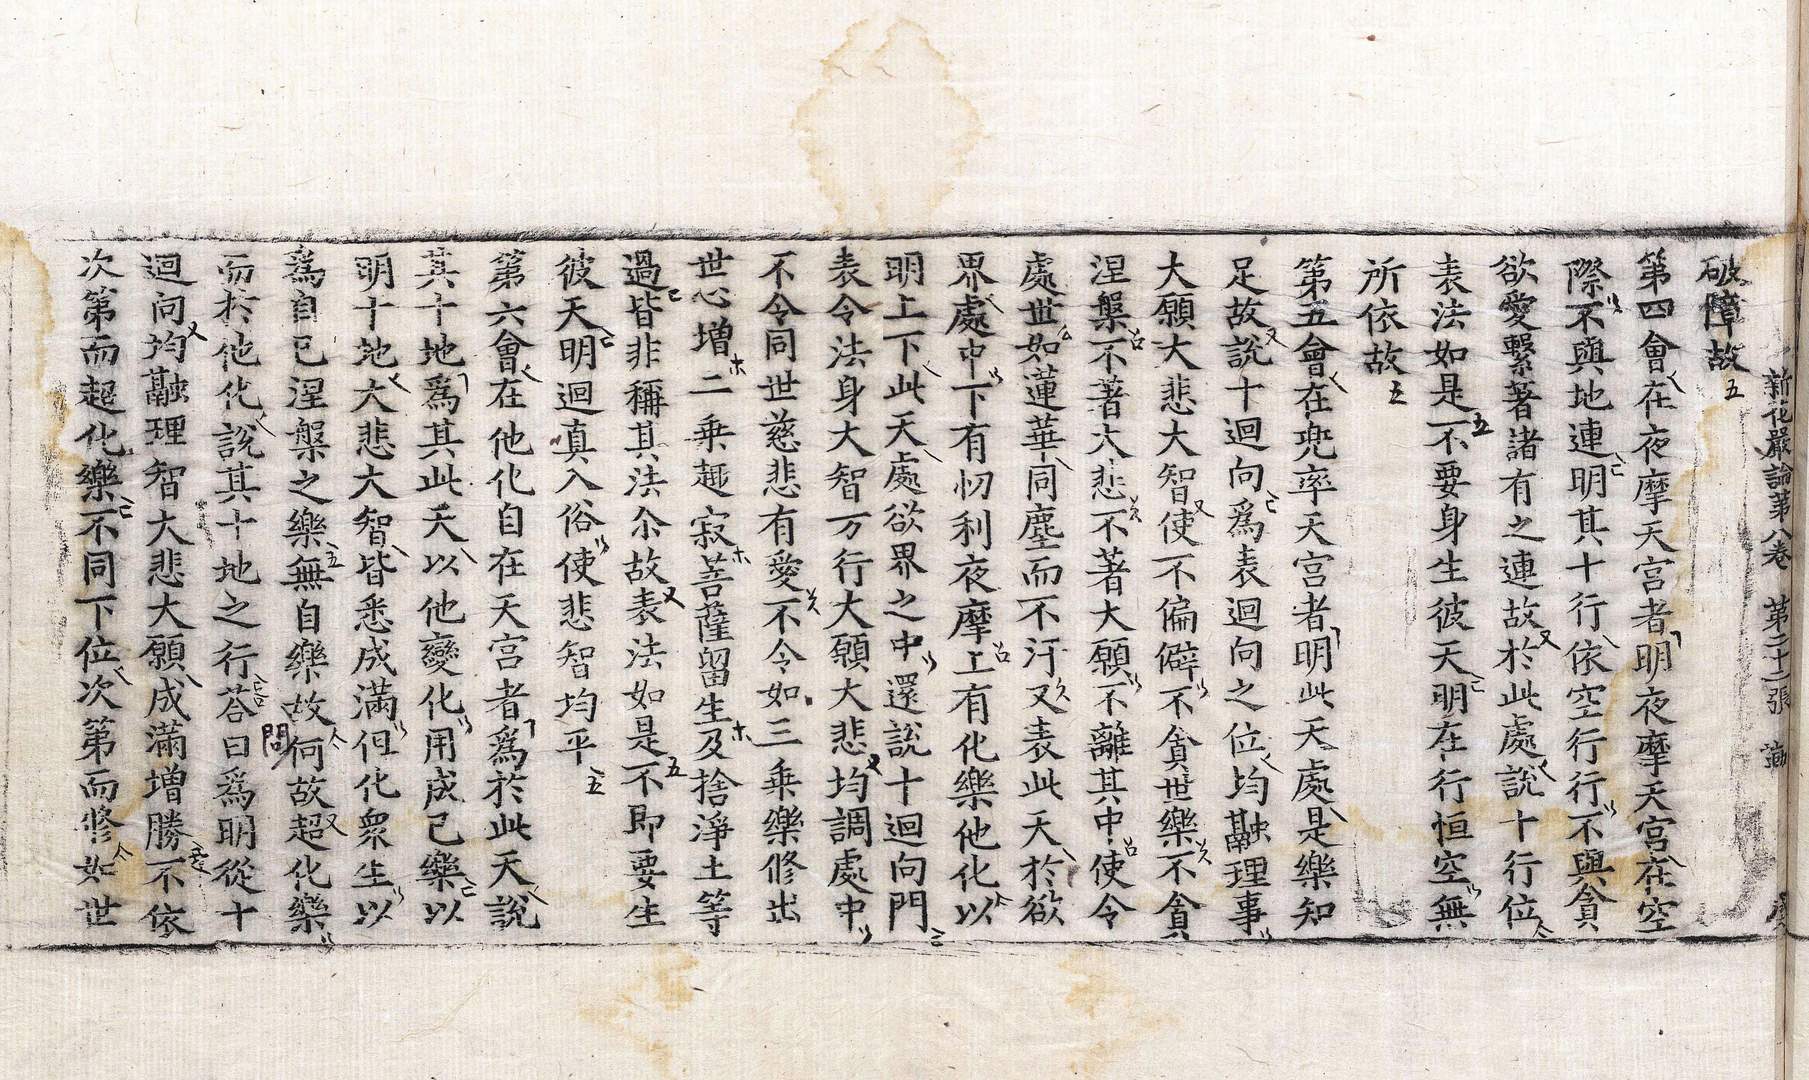 新花嚴論第八卷 第二十二張
破障故
第四會在夜摩天宮者明夜摩天宮在空
際不與地連明其十行依空行行不與貪
欲愛繫著諸有之連故於此處說十行位
表法如是不要身生彼天明在行恒空無
所依故
第五會在兜率天宮者明此天處是樂知
足故說十迴向為表迴向之位均融理事
大願大悲大智使不偏僻不貪世樂不貪
涅槃不著大悲不著大願不離其中使令
處世如蓮華同塵而不汙又表此天於欲
界處中下有忉利夜摩上有化樂他化以
明上下此天處欲界之中還說十迴向門
表令法身大智万行大願大悲均調處中
不令同世慈悲有愛不令如三乗樂修出
世忻增二乗趣寂菩薩留生及捨淨土等
過皆非稱其法尒故表法如是不即要生
彼天明迴真入俗使悲智均平
第六會在他化自在天宮者為於此天說
其十地為其此天以他變化用成已樂以
明十地大悲大智皆悉成滿但化衆生以
為自已涅槃之樂無自樂故問何故超化樂
而於他化說其十地之行荅曰為明從十
迴向均融理智大悲大願成滿增勝不依
次第而超化樂不同下位次次第而修如世